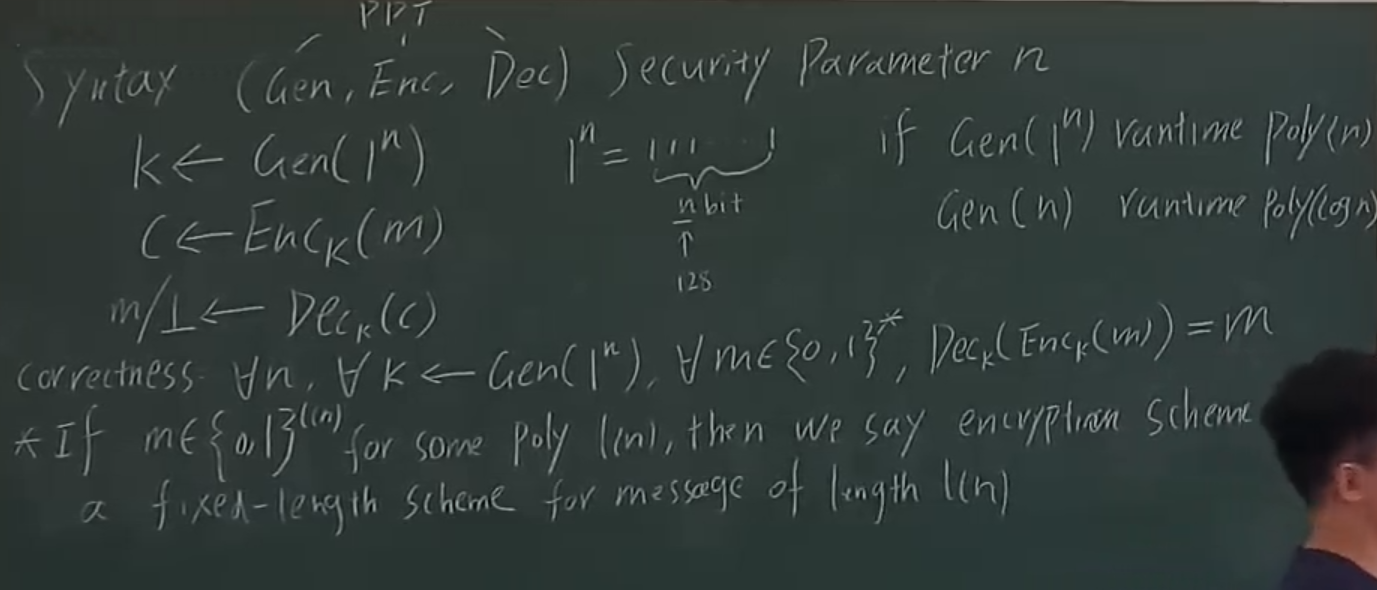 PPT
Syntax (Gen, Enc, Dec) Security Parameter n
k ← Gen(1ⁿ)
1ⁿ = 111.....1
n bit
↑
128
if Gen(1ⁿ) runtime poly(n)
Gen(n) runtime Poly(log n)
C ← Enc_K(m)
m/⊥ ← Dec_K(c)
correctness. ∀n, ∀ K ← Gen(1ⁿ), ∀ m ∈ {0,1}*, Dec_K(Enc_K(m)) = m
* If m ∈ {0,1}^{l(n)} for some poly l(n), then we say encryption scheme
a fixed-length scheme for message of length l(n)